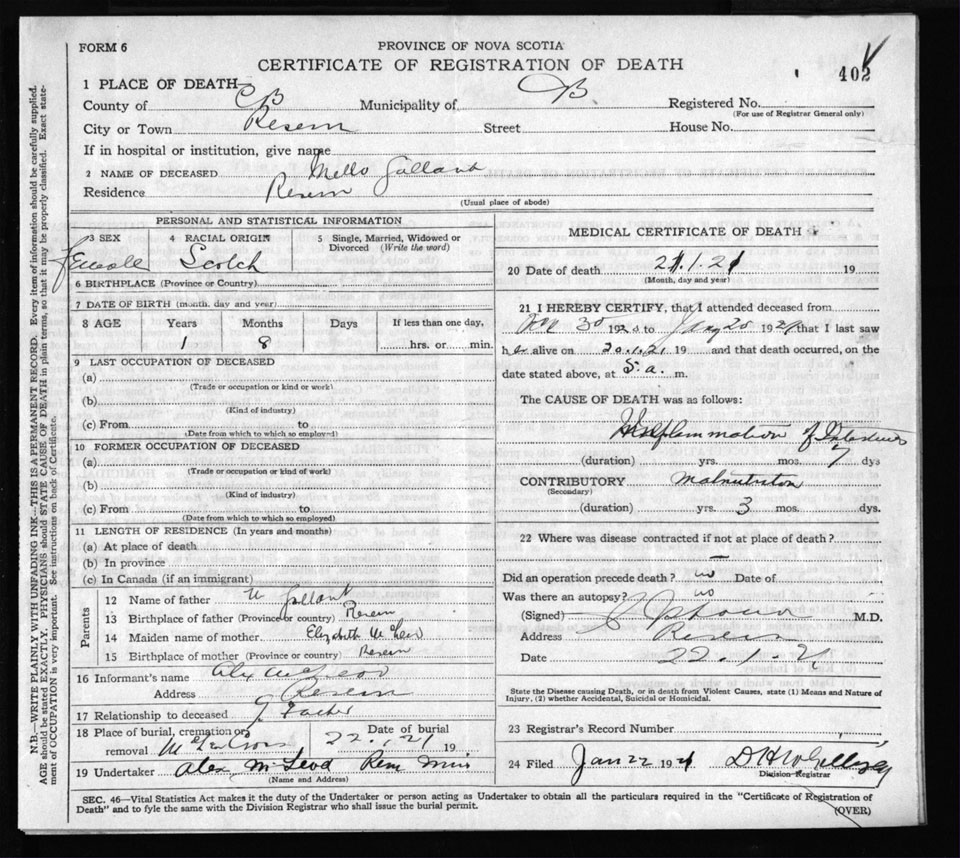 FORM 6
PROVINCE OF NOVA SCOTIA
CERTIFICATE OF REGISTRATION OF DEATH
402
1 PLACE OF DEATH
County of CB Municipality of CB Registered No.
(For use of Registrar General only)
City or Town Reserve Street House No.
If in hospital or institution, give name
2 NAME OF DECEASED Gallant
Residence Reserve
(Usual place of abode)
PERSONAL AND STATISTICAL INFORMATION
3 SEX 4 RACIAL ORIGIN 5 Single, Married, Widowed or Divorced (Write the word)
Female Scotch
6 BIRTHPLACE (Province or Country)
7 DATE OF BIRTH (month, day and year)
8 AGE Years Months Days If less than one day,
1 8 hrs. or min.
9 LAST OCCUPATION OF DECEASED
(a)
(Trade or occupation or kind or work)
(b)
(Kind of industry)
(c) From to
(Date from which to which so employed)
10 FORMER OCCUPATION OF DECEASED
(a)
(Trade or occupation or kind of work)
(b)
(Kind of industry)
(c) From to
(Date from which to which so employed)
11 LENGTH OF RESIDENCE (In years and months)
(a) At place of death
(b) In province
(c) In Canada (if an immigrant)
Parents
12 Name of father Gallant
13 Birthplace of father (Province or country) Reserve
14 Maiden name of mother Elizabeth
15 Birthplace of mother (Province or country) Reserve
16 Informant's name Alex McLeod
Address Reserve
17 Relationship to deceased G. Father
18 Place of burial, cremation or removal Date of burial
22.1.21 19
19 Undertaker Alex McLeod
(Name and Address)
MEDICAL CERTIFICATE OF DEATH
20 Date of death 21.1.21 19
(Month, day and year)
21 I HEREBY CERTIFY, that I attended deceased from
Dec 30 192 to Jany 20 1921 that I last saw
her alive on 20.1.21 19 and that death occurred, on the
date stated above, at 5. a. m.
The CAUSE OF DEATH was as follows:
of Intestines
(duration) yrs. mos. 7 dys
CONTRIBUTORY Malnutrition
(Secondary)
(duration) yrs. 3 mos. dys.
22 Where was disease contracted if not at place of death?
Did an operation precede death? no Date of
Was there an autopsy? no
(Signed) M.D.
Address Reserve
Date 22.1.21
State the Disease causing Death, or in death from Violent Causes, state (1) Means and Nature of
Injury, (2) whether Accidental, Suicidal or Homicidal.
23 Registrar's Record Number
24 Filed Jan 22 1921
Division Registrar
SEC. 46—Vital Statistics Act makes it the duty of the Undertaker or person acting as Undertaker to obtain all the particulars required in the "Certificate of Registration of
Death" and to fyle the same with the Division Registrar who shall issue the burial permit.
(OVER)
N.B.—WRITE PLAINLY WITH UNFADING INK—THIS IS A PERMANENT RECORD. Every item of information should be carefully supplied.
AGE should be stated EXACTLY. PHYSICIANS should STATE CAUSE OF DEATH in plain terms, so that it may be properly classified. Exact state-
ment of OCCUPATION is very important. See instructions on back of Certificate.